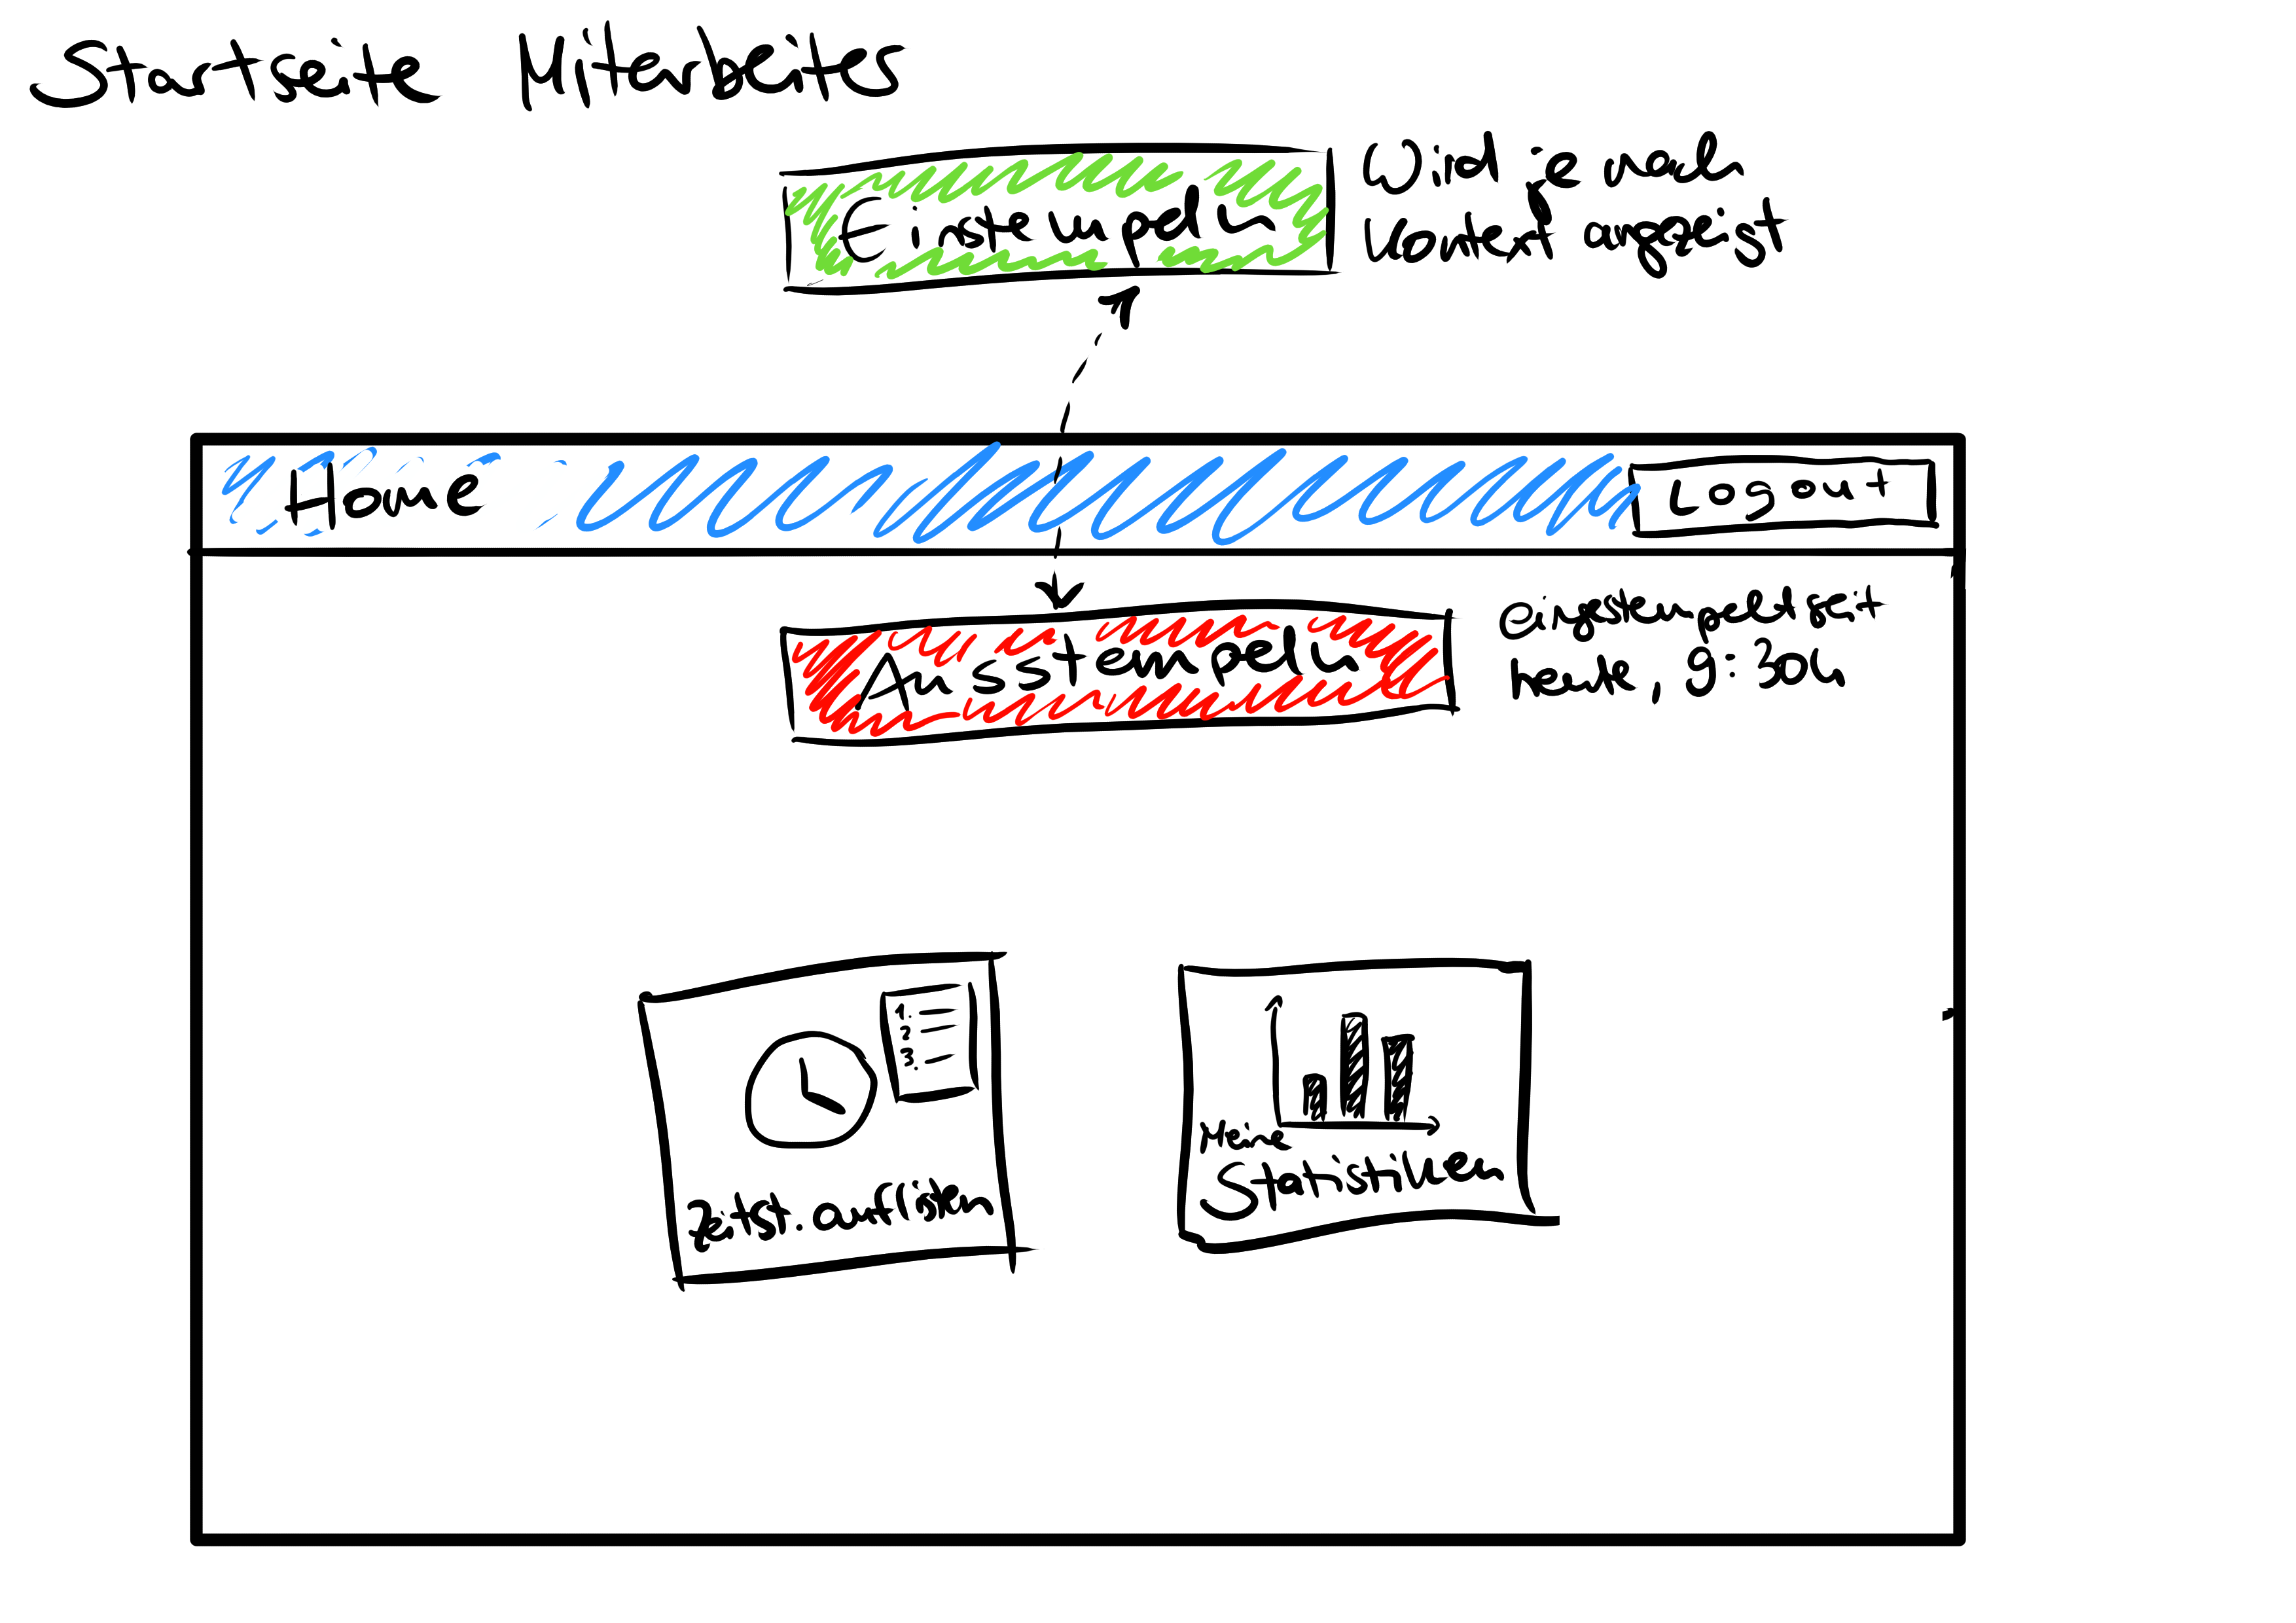 Startseite Mitarbeiter
Einstempeln
Wird je nach
Kontext angezeigt
Home
Logout
Ausstempeln
eingestempelt seit
heute, 9:30h
1.
2.
3.
Zeitst. auflisten
Meine
Statistiken